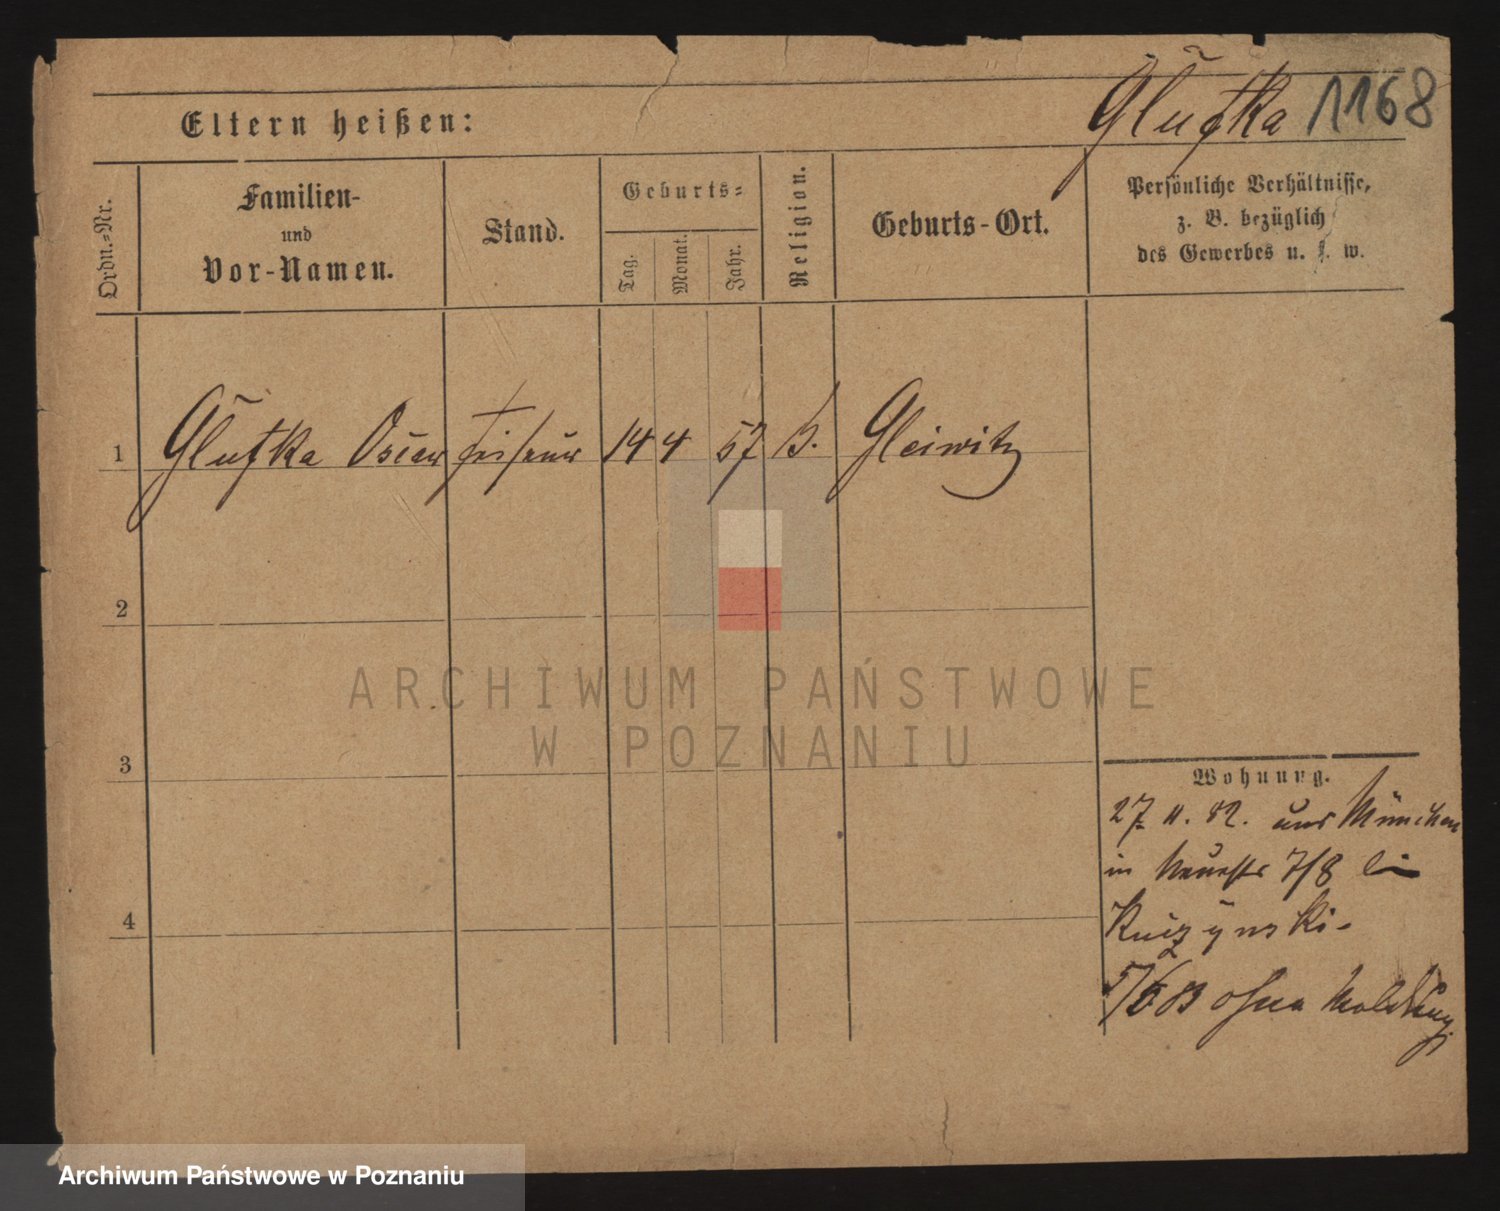 Glufka 1168
Eltern heißen:
Ordn.-Nr.
Familien-
und
Vor-Namen.
Stand.
Geburts-
Tag.
Monat.
Jahr.
Religion.
Geburts-Ort.
Persönliche Verhältnisse,
z. B. bezüglich
des Gewerbes u. s. w.
1 Glufka Oscar Friseur 14 4 57 Gleiwitz
2
3
4
Wohnung.
27. 11. 82. aus München
in Neuestr 7/8 bei
Kuczynski-
5/6 83 ohne Meldung.
ARCHIWUM PAŃSTWOWE
W POZNANIU
Archiwum Państwowe w Poznaniu